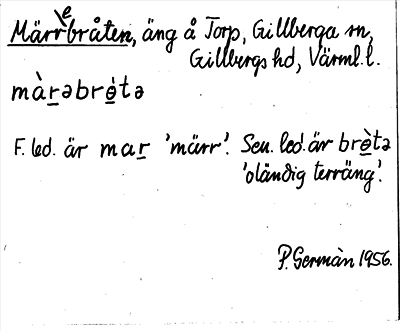 Märrebråten, äng å Torp, Gillberga sn,
Gillbergs hd, Värml. l.
màr̲əbrè̲tə
F. led. är mar̲ 'märr'. Sen. led. är brè̲tə
'oländig terräng'.
P. Germàn 1956.